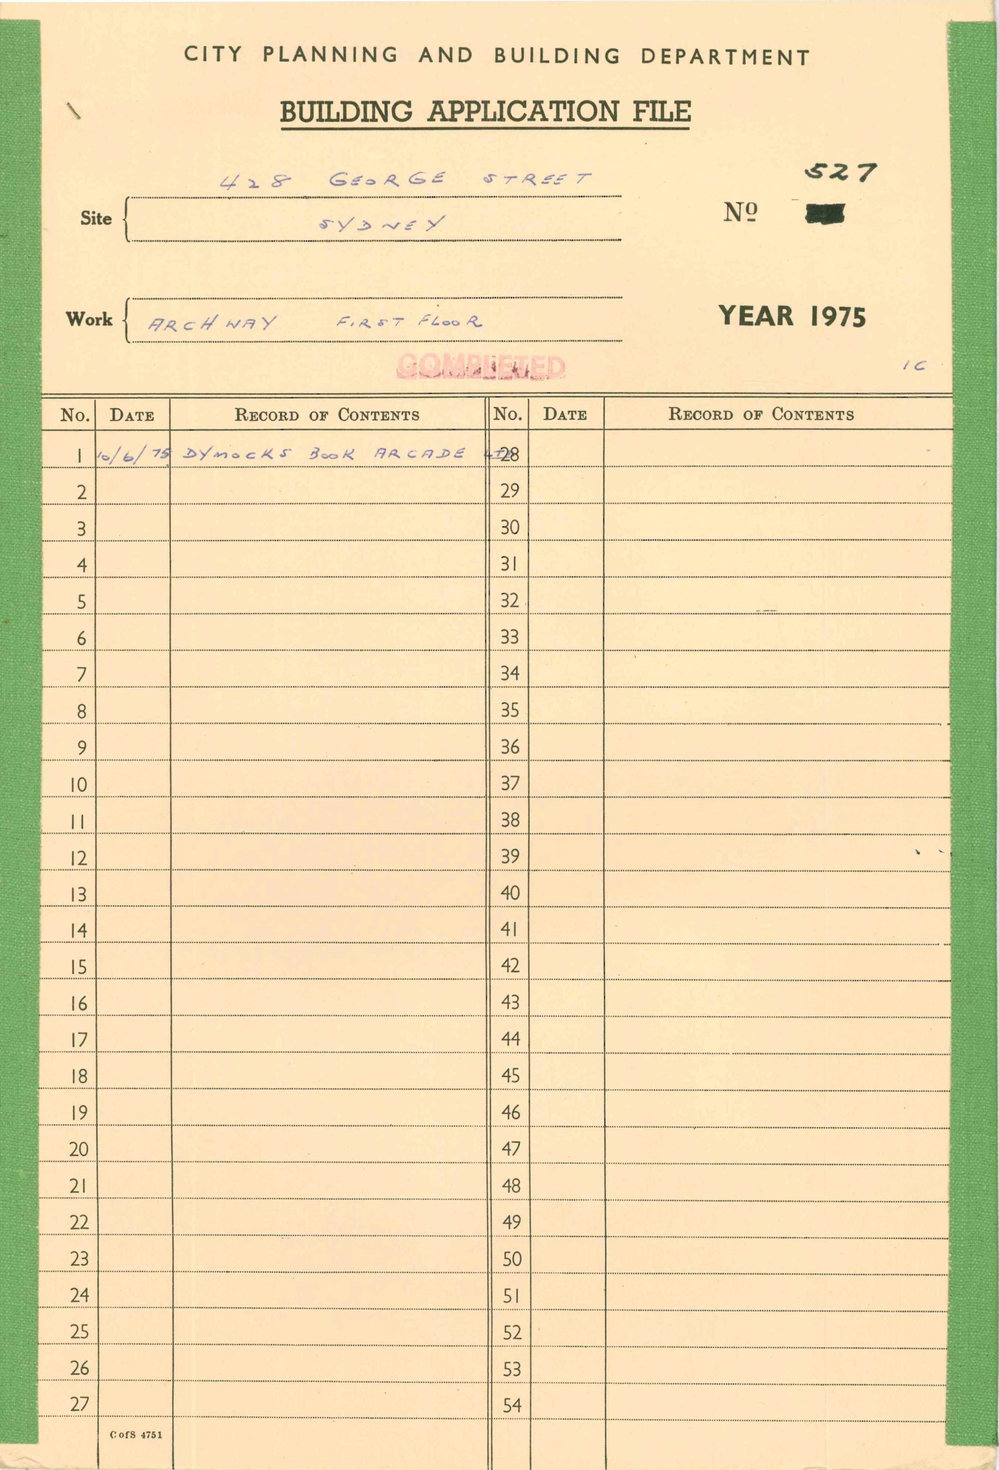 CITY PLANNING AND BUILDING DEPARTMENT
BUILDING APPLICATION FILE
527
428 GEORGE STREET
Site SYDNEY Nº
Work ARCHWAY FIRST FLOOR YEAR 1975
COMPLETED
1C
No. DATE RECORD OF CONTENTS No. DATE RECORD OF CONTENTS
1 10/6/75 DYMOCKS BOOK ARCADE 28
2 29
3 30
4 31
5 32
6 33
7 34
8 35
9 36
10 37
11 38
12 39
13 40
14 41
15 42
16 43
17 44
18 45
19 46
20 47
21 48
22 49
23 50
24 51
25 52
26 53
27 54
C of S 4751